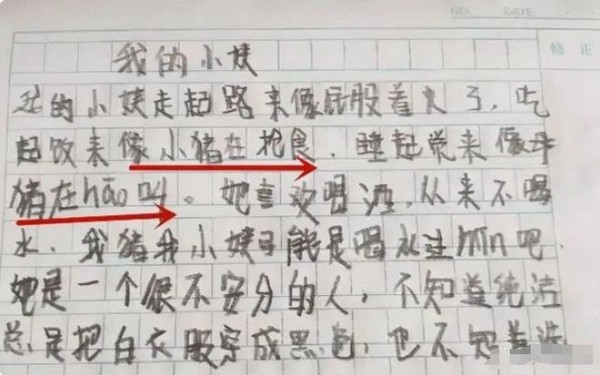 NO. DATE:
修正
我的小姨
我的小姨走起路来像屁股着火了，吃
起饭来像小猪在抢食，睡起觉来像母
猪在hāo叫。她喜欢喝酒，从来不喝
水，我猪我小姨可能是喝水过min吧，
她是一个很不安分的人，不知道纯洁
总是把白衣服穿成黑色，也不知羞洗